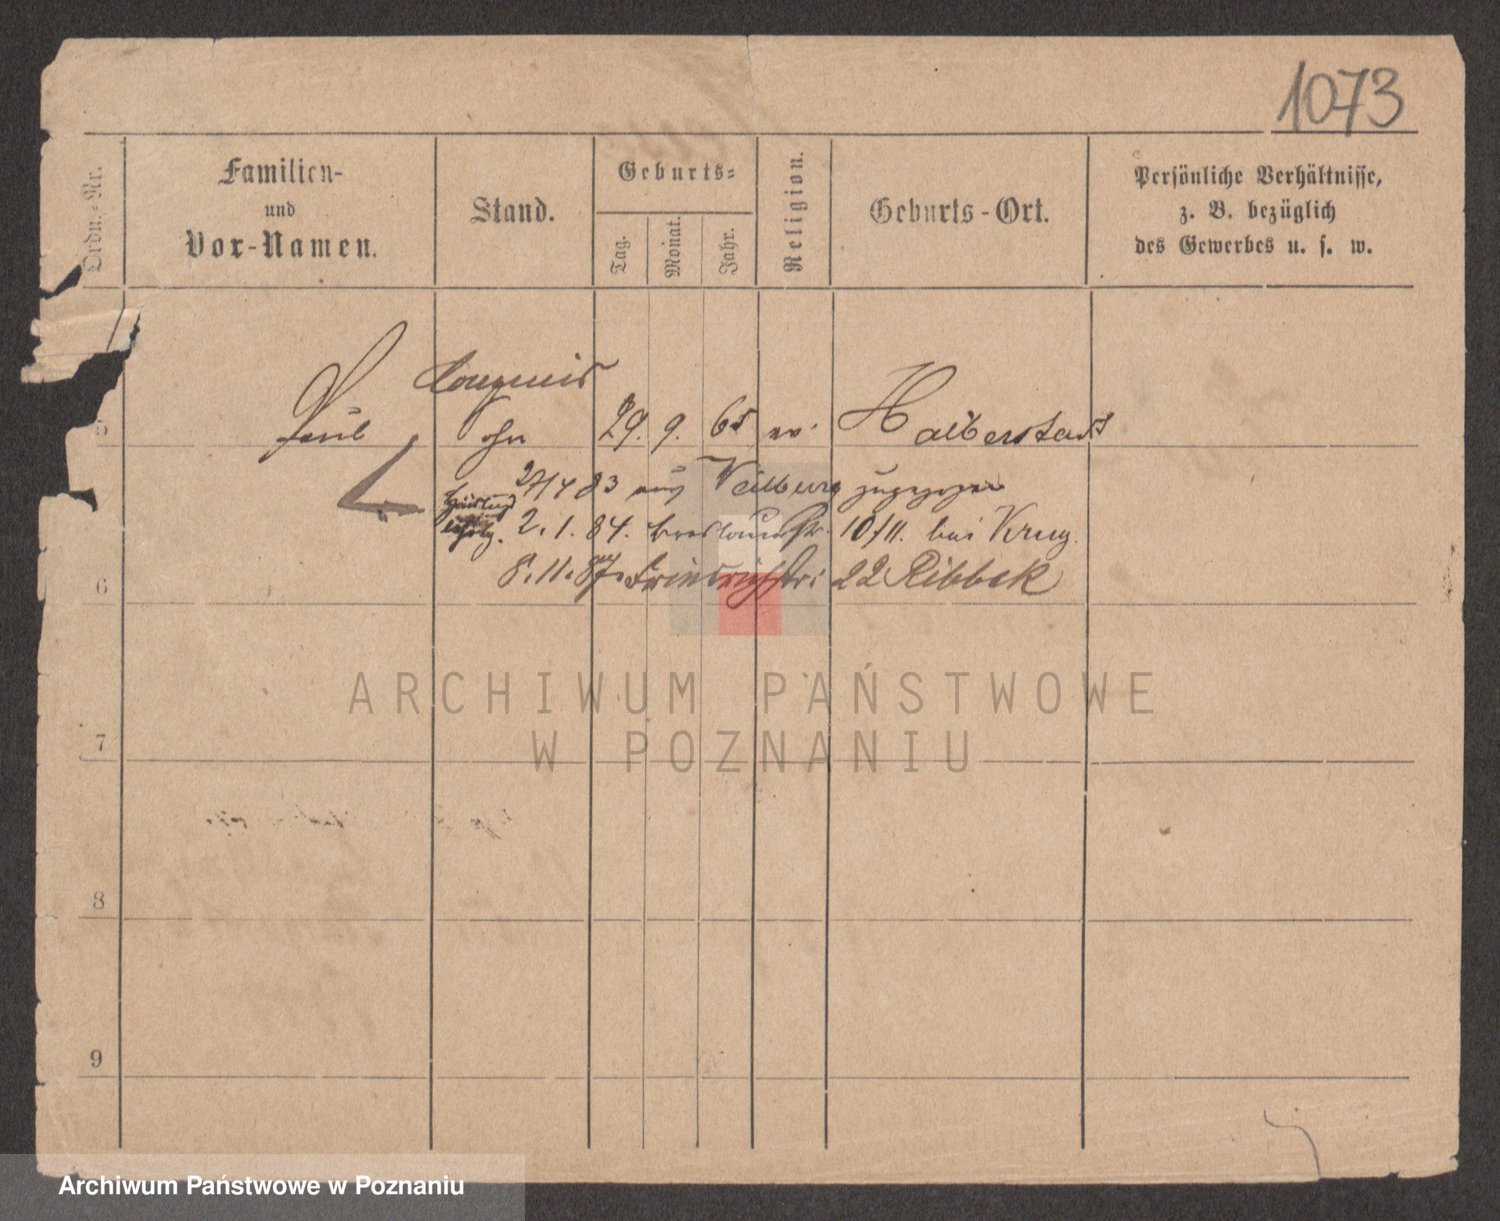 1073
Ordn.-Nr.
Familien-
und
Vor-Namen.
Stand.
Geburts-
Tag.
Monat.
Jahr.
Religion.
Geburts-Ort.
Persönliche Verhältnisse,
z. B. bezüglich
des Gewerbes u. s. w.
5
Paul 29. 9. 65 ev. Halberstadt
27/4 83 aus Weilburg zugezogen
2. 1. 84. Breslauerstr. 10/11. bei Krug
6
8. 11. 87. Friedrichstr. 22 Ribbek
ARCHIWUM PAŃSTWOWE
W POZNANIU
7
8
9
Archiwum Państwowe w Poznaniu